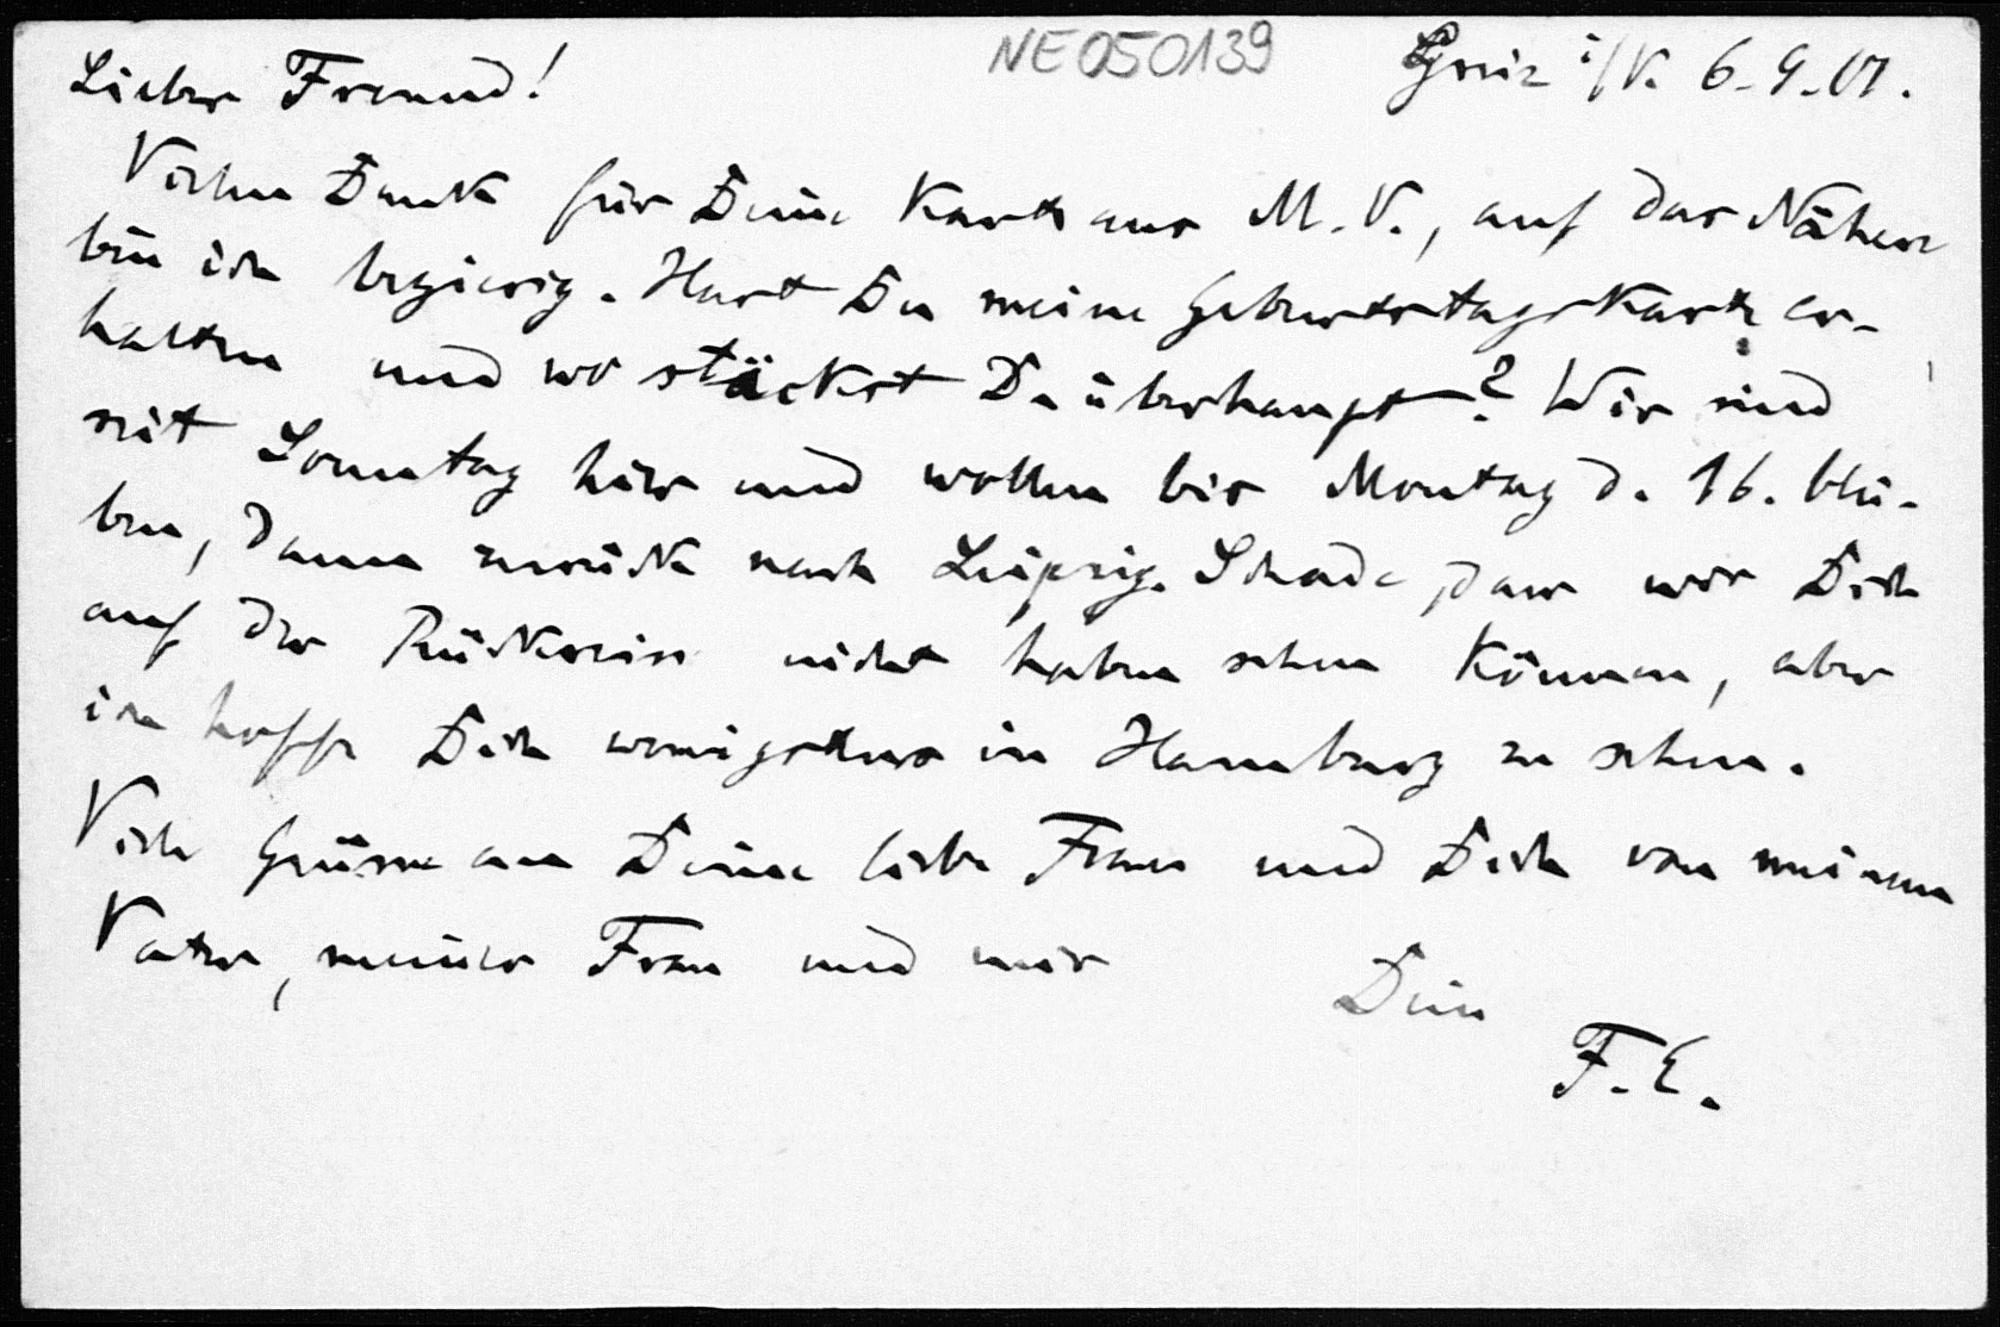 NE050139
Greiz i/V. 6.9.01.
Lieber Freund!
Vielen Dank für Deine Karte aus M.V., auf das Nähere
bin ich begierig. Hast Du meine Geburtstagskarte er-
halten und wo stäckst Du überhaupt? Wir sind
seit Sonntag hier und wollen bis Montag d. 16. blei-
ben, dann zurück nach Leipzig. Schade, dass wir Dich
auf der Rückreise nicht haben sehen können, aber
ich hoffe Dich wenigstens in Hamburg zu sehen.
Viele Grüsse an Deine liebe Frau und Dich von meinem
Vater, meiner Frau und mir
Dein
F.E.